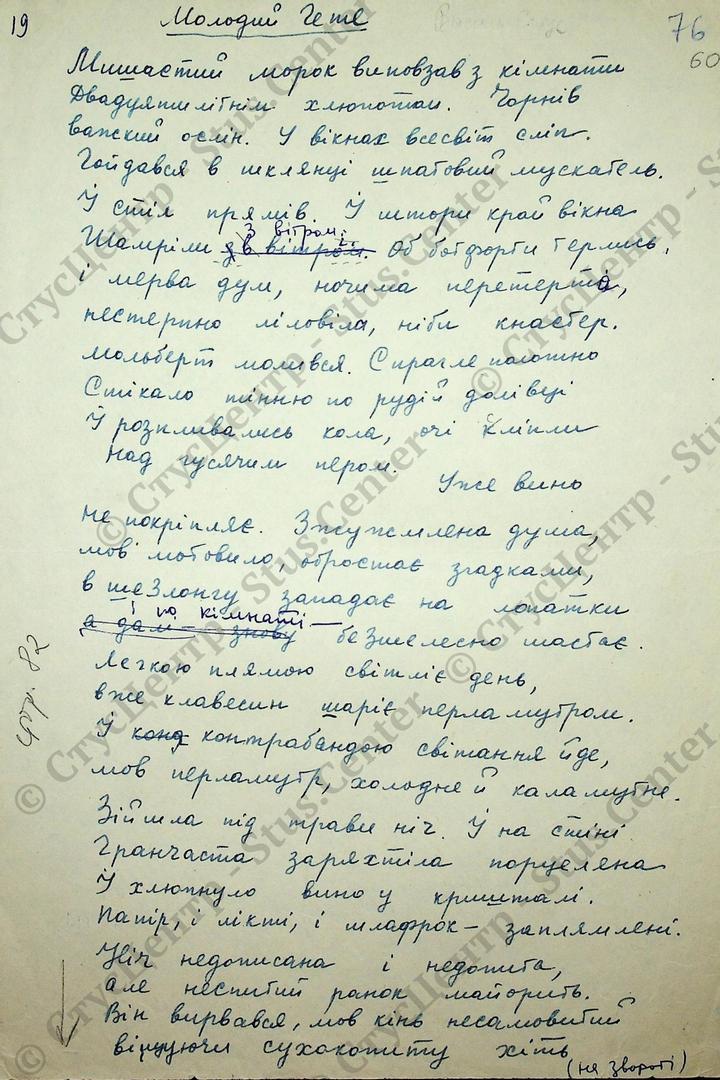 19
Молодий Гете
76
60
Мишастий морок виповзав з кімнати
Двадцятилітнім клопотом. Чорнів
важкий ослін. У вікнах всесвіт сліп.
Гойдався в шклянці шпатовий мускатель.
І стіл прямів. І штори край вікна
з вітром.
Шамріли з вітром. Об ботфорти терлись,
і мерва дум, ночима перетерта,
нестерпно ліловіла, ніби кнастер.
Мольберт молився. Спрагле полотно
Стікало тінню по рудій долівці
І розпливались кола, очі кліпли
над гусячим пером.
Уже вино
не покріпляє. Зжужмлена душа,
мов мотовило, обростає згадками,
в шезлонгу западає на лопатки
і по кімнаті —
а дам — знову безшелесно шастає.
Легкою плямою світліє день,
вже клавесин шаріє перламутром.
І конд контрабандою світання йде,
мов перламутр, холодне й каламутне.
Зійшла під трави ніч. І на стіні
Гранчаста заряхтіла порцеляна
І хлюпнуло вино у кришталі.
Папір, і лікті, і шлафрок — заплямлені.
Ніч недописана і недопита,
але неспитий ранок майорить.
Він вирвався, мов кінь несамовитий
віщуючи сухокопиту хіть
(на звороті)
Стор. 82
© СтусЦентр - Stus.Center
© СтусЦентр - Stus.Center
© СтусЦентр - Stus.Center
© СтусЦентр - Stus.Center